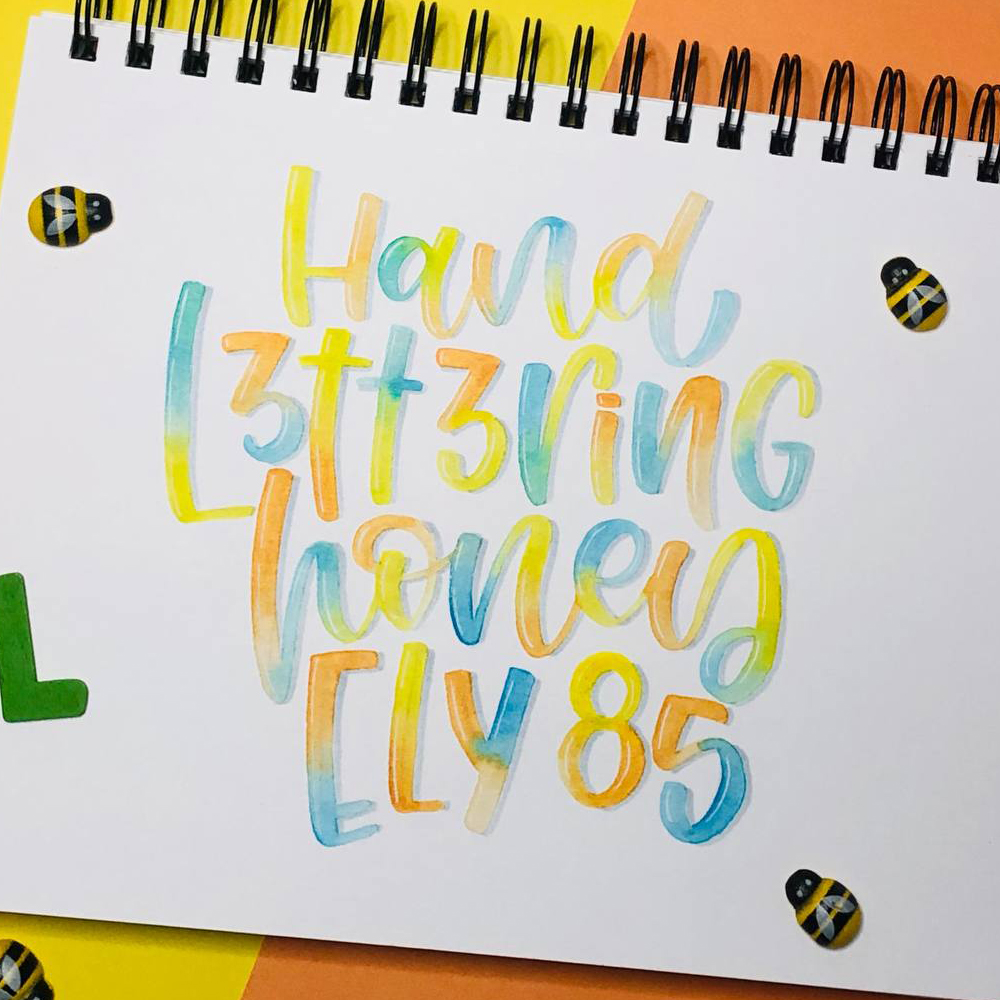 Hand
L3tt3rinG
honey
ELY 85
L